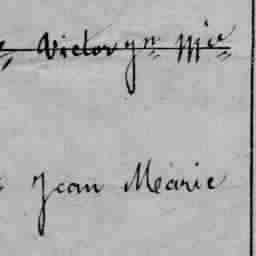 Victor Jn Mie
Jean Marie